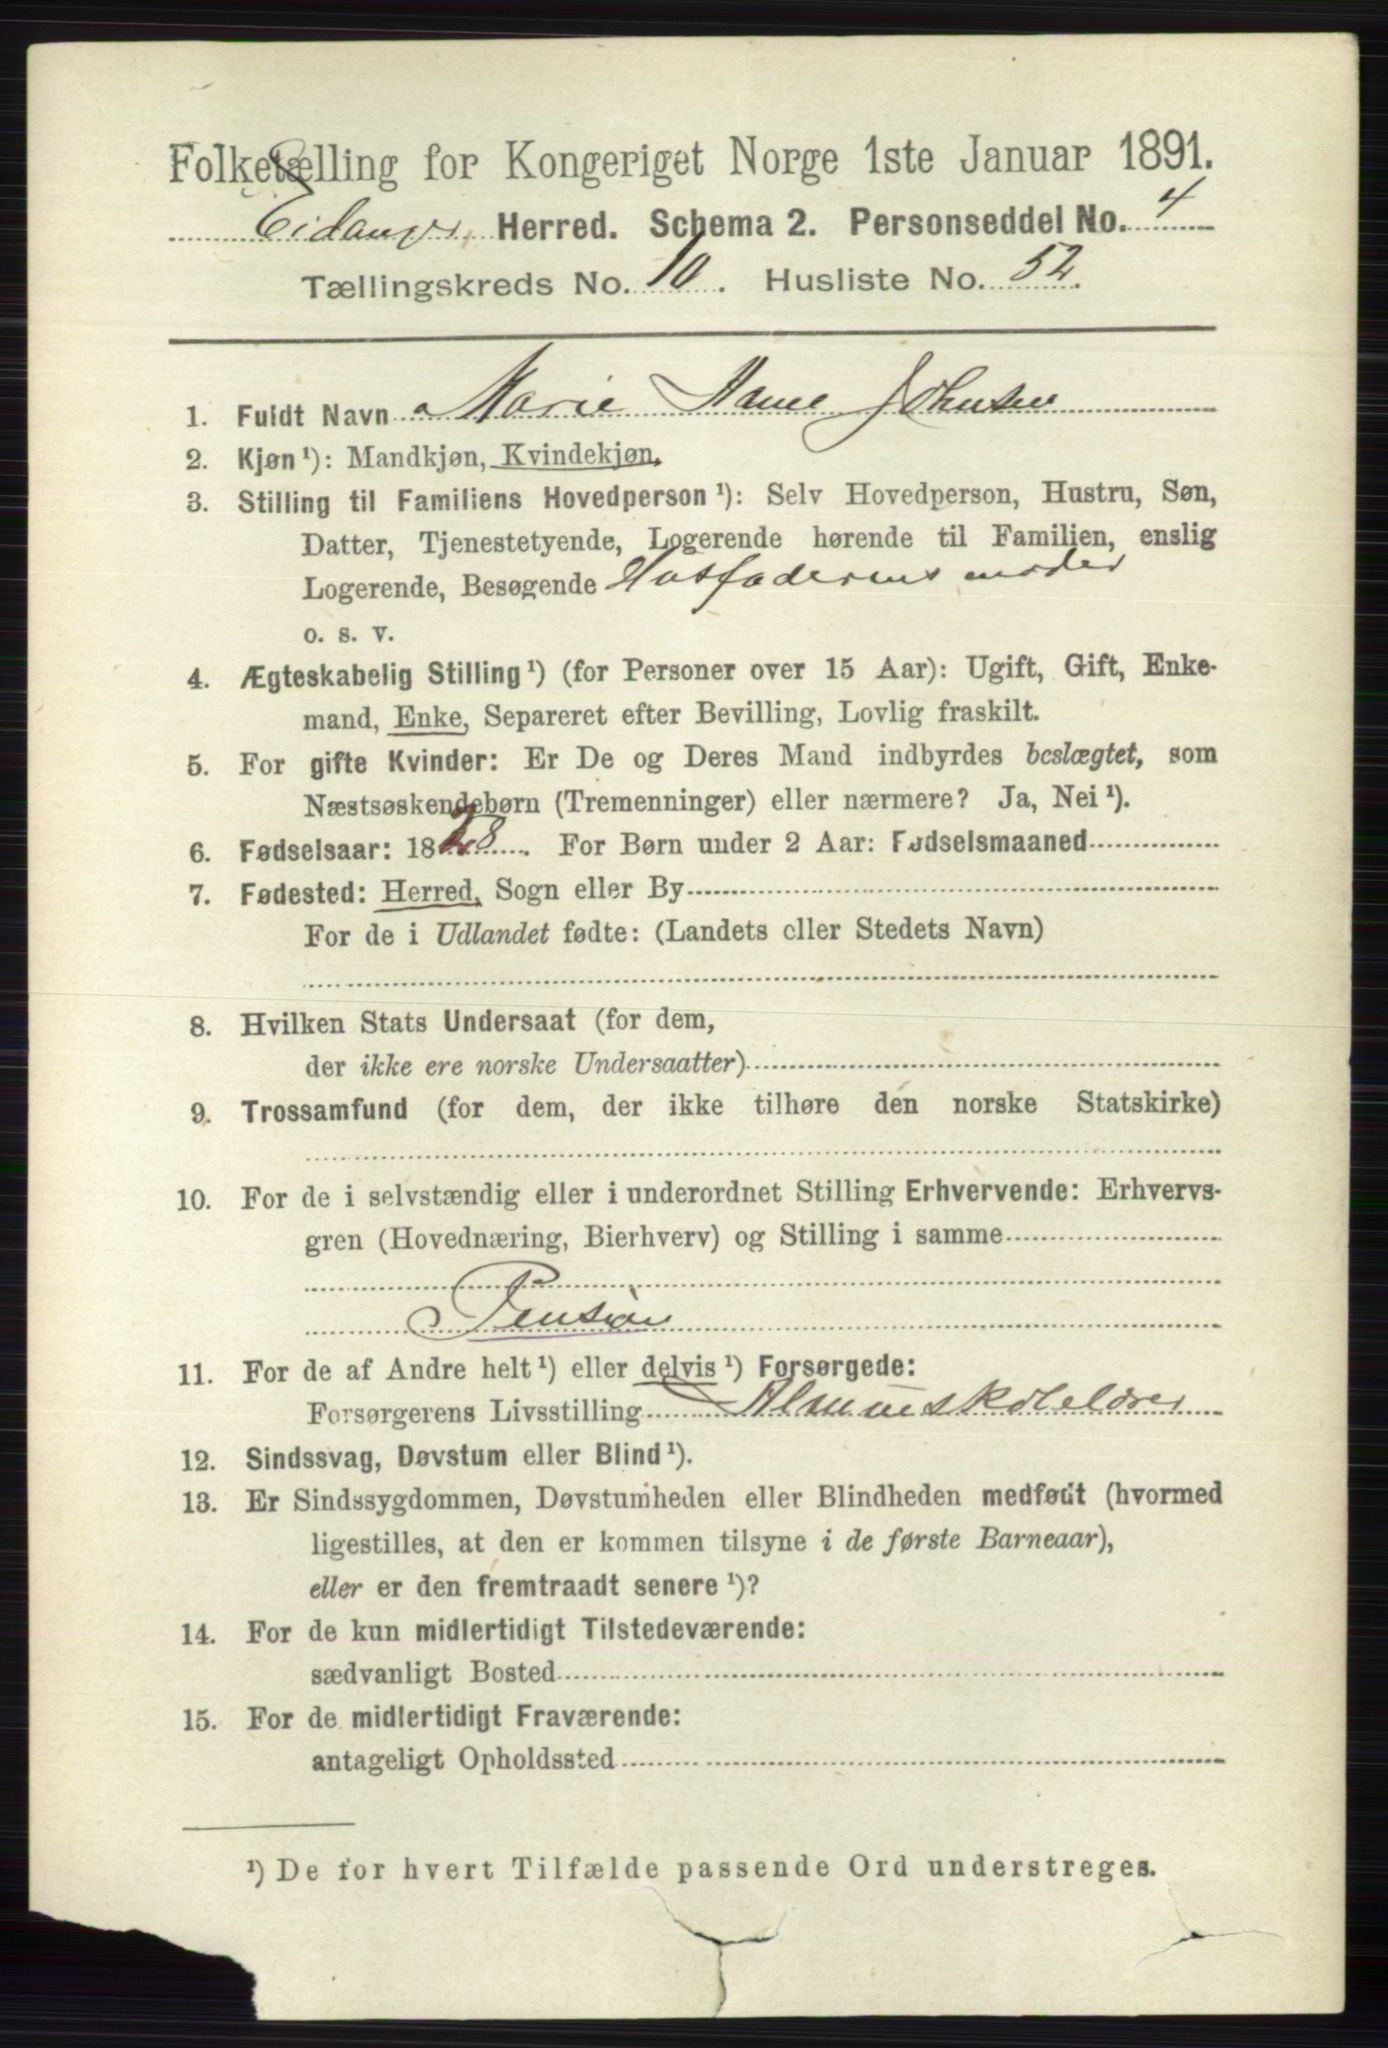 Folketælling for Kongeriget Norge 1ste Januar 1891.
Eidanger Herred. Schema 2. Personseddel No. 4
Tællingskreds No. 10. Husliste No. 52.
1. Fuldt Navn Marie Johnsen
2. Kjøn ¹): Mandkjøn, Kvindekjøn.
3. Stilling til Familiens Hovedperson ¹): Selv Hovedperson, Hustru, Søn,
Datter, Tjenestetyende, Logerende hørende til Familien, enslig
Logerende, Besøgende Husfaderens moder
o. s. v.
4. Ægteskabelig Stilling ¹) (for Personer over 15 Aar): Ugift, Gift, Enke-
mand, Enke, Separeret efter Bevilling, Lovlig fraskilt.
5. For gifte Kvinder: Er De og Deres Mand indbyrdes beslægtet, som
Næstsøskendebørn (Tremenninger) eller nærmere? Ja, Nei ¹).
6. Fødselsaar: 1828. For Børn under 2 Aar: Fødselsmaaned
7. Fødested: Herred, Sogn eller By
For de i Udlandet fødte: (Landets eller Stedets Navn)
8. Hvilken Stats Undersaat (for dem,
der ikke ere norske Undersaatter)
9. Trossamfund (for dem, der ikke tilhøre den norske Statskirke)
10. For de i selvstændig eller i underordnet Stilling Erhvervende: Erhvervs-
gren (Hovednæring, Bierhverv) og Stilling i samme
Pension
11. For de af Andre helt ¹) eller delvis ¹) Forsørgede:
Forsørgerens Livsstilling Almueskolelærer
12. Sindssvag, Døvstum eller Blind ¹).
13. Er Sindssygdommen, Døvstumheden eller Blindheden medfødt (hvormed
ligestilles, at den er kommen tilsyne i de første Barneaar),
eller er den fremtraadt senere ¹)?
14. For de kun midlertidigt Tilstedeværende:
sædvanligt Bosted
15. For de midlertidigt Fraværende:
antageligt Opholdssted
¹) De for hvert Tilfælde passende Ord understreges.